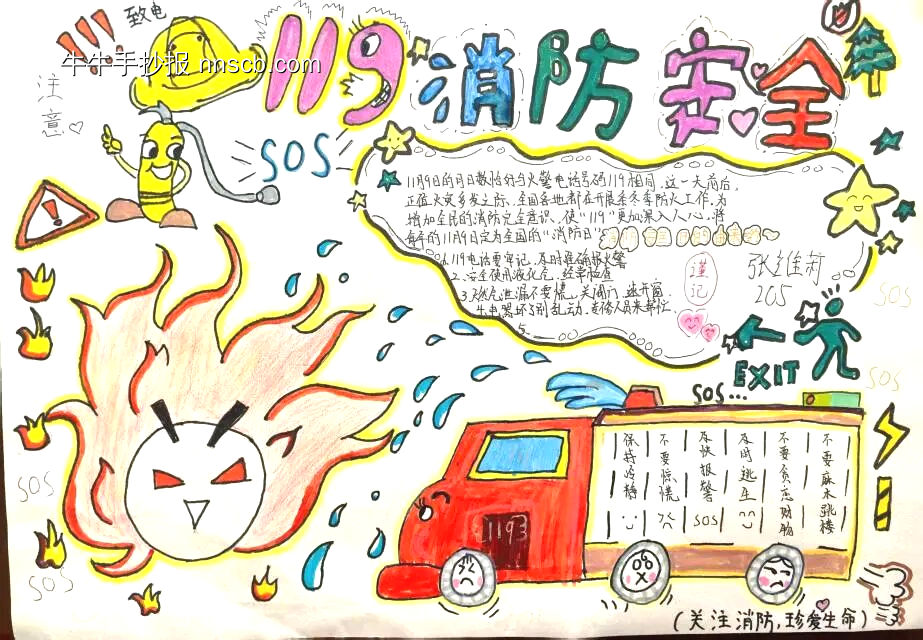 致电
牛牛手抄报 nnscb.com
119消防安全
注意
SOS
11月9日的月日数恰好与火警电话号码119相同,这一天前后,
正值火灾多发之际,全国各地都在开展冬季防火工作,为
增加全民的消防安全意识,使"119"更加深入人心,将
每年的11月9日定为全国的"消防日"
119电话要牢记,及时准确报火警
2、安全使用液化气,经常检查
3.燃气泄漏不要慌,关阀门,速开窗
4.电器坏了别乱动,专修人员来帮忙
5
谨记
张维莉
205
SOS
EXIT
SOS
SOS...
保持冷静
不要惊慌
及快报警
SOS
及时逃生
不要贪恋财物
不要麻木跳楼
1193
SOS
SOS
(关注消防,珍爱生命)